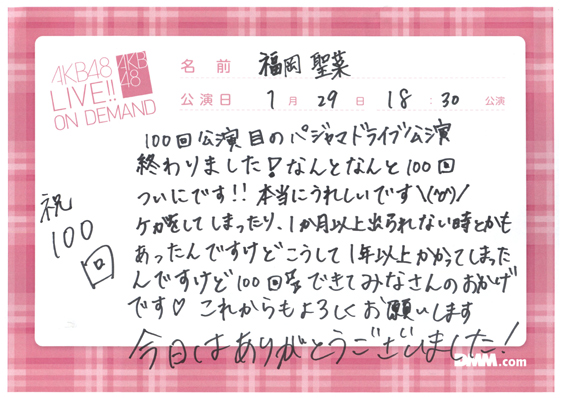 AKB48
LIVE!!
ON DEMAND
AKB
48
名前 福岡 聖菜
公演日 1月29日 18:30公演
100回公演目のパジャマドライブ公演
終わりました！なんとなんと100回
ついにです！！本当にうれしいです\(^o^)/
ケガをしてしまったり、1か月以上出られない時とかも
あったんですけどこうして1年以上かかってしまった
んですけど100回できてみなさんのおかげ
です♡ これからもよろしくお願いします
今日はありがとうございました！
祝
100
回
DMM.com